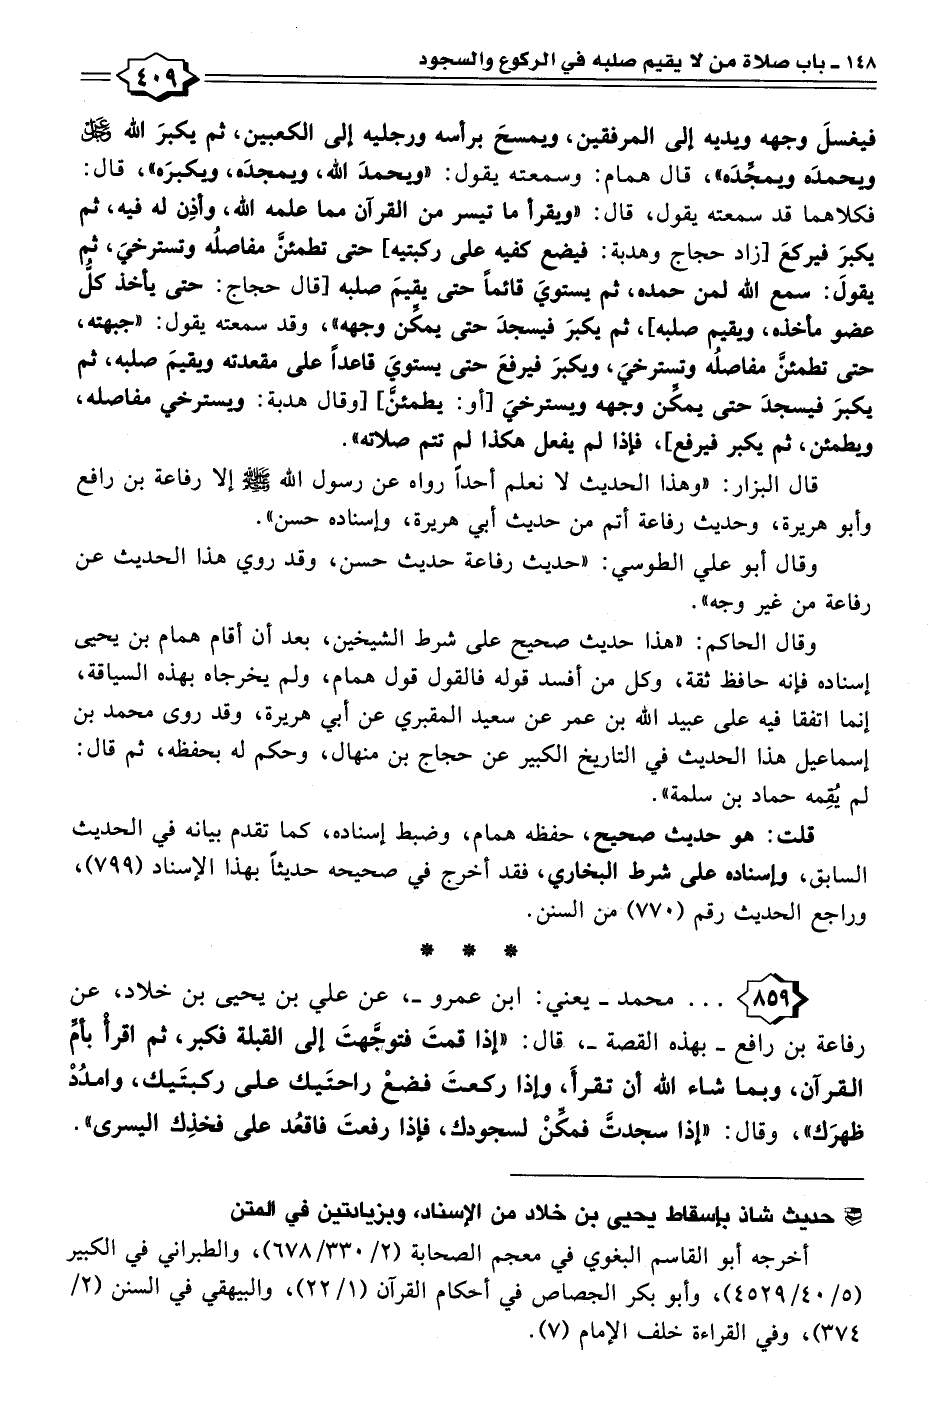 ١٤٨ ـ باب صلاة من لا يقيم صلبه في الركوع والسجود
٤٠٩
فيغسلَ وجهه ويديه إلى المرفقين، ويمسحَ برأسه ورجليه إلى الكعبين، ثم يكبرَ الله ﷻ
ويحمدَه ويمجِّدَه»، قال همام: وسمعته يقول: «ويحمدَ الله، ويمجدَه، ويكبرَه»، قال:
فكلاهما قد سمعته يقول، قال: «ويقرأ ما تيسر من القرآن مما علمه الله، وأذِن له فيه، ثم
يكبرَ فيركعَ [زاد حجاج وهدبة: فيضع كفيه على ركبتيه] حتى تطمئنَّ مفاصلُه وتسترخيَ، ثم
يقولَ: سمع الله لمن حمده، ثم يستويَ قائماً حتى يقيمَ صلبه [قال حجاج: حتى يأخذ كلُّ
عضو مأخذه، ويقيم صلبه]، ثم يكبرَ فيسجدَ حتى يمكِّن وجهه»، وقد سمعته يقول: «جبهته،
حتى تطمئنَّ مفاصلُه وتسترخيَ، ويكبرَ فيرفعَ حتى يستويَ قاعداً على مقعدته ويقيمَ صلبه، ثم
يكبرَ فيسجدَ حتى يمكِّن وجهه ويسترخيَ [أو: يطمئنَّ] [وقال هدبة: ويسترخي مفاصله،
ويطمئن، ثم يكبر فيرفع]، فإذا لم يفعل هكذا لم تتم صلاته».
قال البزار: «وهذا الحديث لا نعلم أحداً رواه عن رسول الله ﷺ إلا رفاعة بن رافع
وأبو هريرة، وحديث رفاعة أتم من حديث أبي هريرة، وإسناده حسن».
وقال أبو علي الطوسي: «حديث رفاعة حديث حسن، وقد روي هذا الحديث عن
رفاعة من غير وجه».
وقال الحاكم: «هذا حديث صحيح على شرط الشيخين، بعد أن أقام همام بن يحيى
إسناده فإنه حافظ ثقة، وكل من أفسد قوله فالقول قول همام، ولم يخرجاه بهذه السياقة،
إنما اتفقا فيه على عبيد الله بن عمر عن سعيد المقبري عن أبي هريرة، وقد روى محمد بن
إسماعيل هذا الحديث في التاريخ الكبير عن حجاج بن منهال، وحكم له بحفظه، ثم قال:
لم يُقِمه حماد بن سلمة».
قلت: هو حديث صحيح، حفظه همام، وضبط إسناده، كما تقدم بيانه في الحديث
السابق، وإسناده على شرط البخاري، فقد أخرج في صحيحه حديثاً بهذا الإسناد (٧٩٩)،
وراجع الحديث رقم (٧٧٠) من السنن.
* * *
٨٥٩ ... محمد ـ يعني: ابن عمرو ـ، عن علي بن يحيى بن خلاد، عن
رفاعة بن رافع ـ بهذه القصة ـ، قال: «إذا قمتَ فتوجَّهتَ إلى القبلة فكبر، ثم اقرأْ بأمِّ
القرآن، وبما شاء الله أن تقرأَ، وإذا ركعتَ فضعْ راحتَيك على ركبتَيك، وامدُدْ
ظهرَك»، وقال: «إذا سجدتَّ فمكِّنْ لسجودك، فإذا رفعتَ فاقعُد على فخذِك اليسرى».
حديث شاذ بإسقاط يحيى بن خلاد من الإسناد، وبزيادتين في المتن
أخرجه أبو القاسم البغوي في معجم الصحابة (٢/ ٣٣٠/ ٦٧٨)، والطبراني في الكبير
(٥/ ٤٠/ ٤٥٢٩)، وأبو بكر الجصاص في أحكام القرآن (١/ ٢٢)، والبيهقي في السنن (٢/
٣٧٤)، وفي القراءة خلف الإمام (٧).